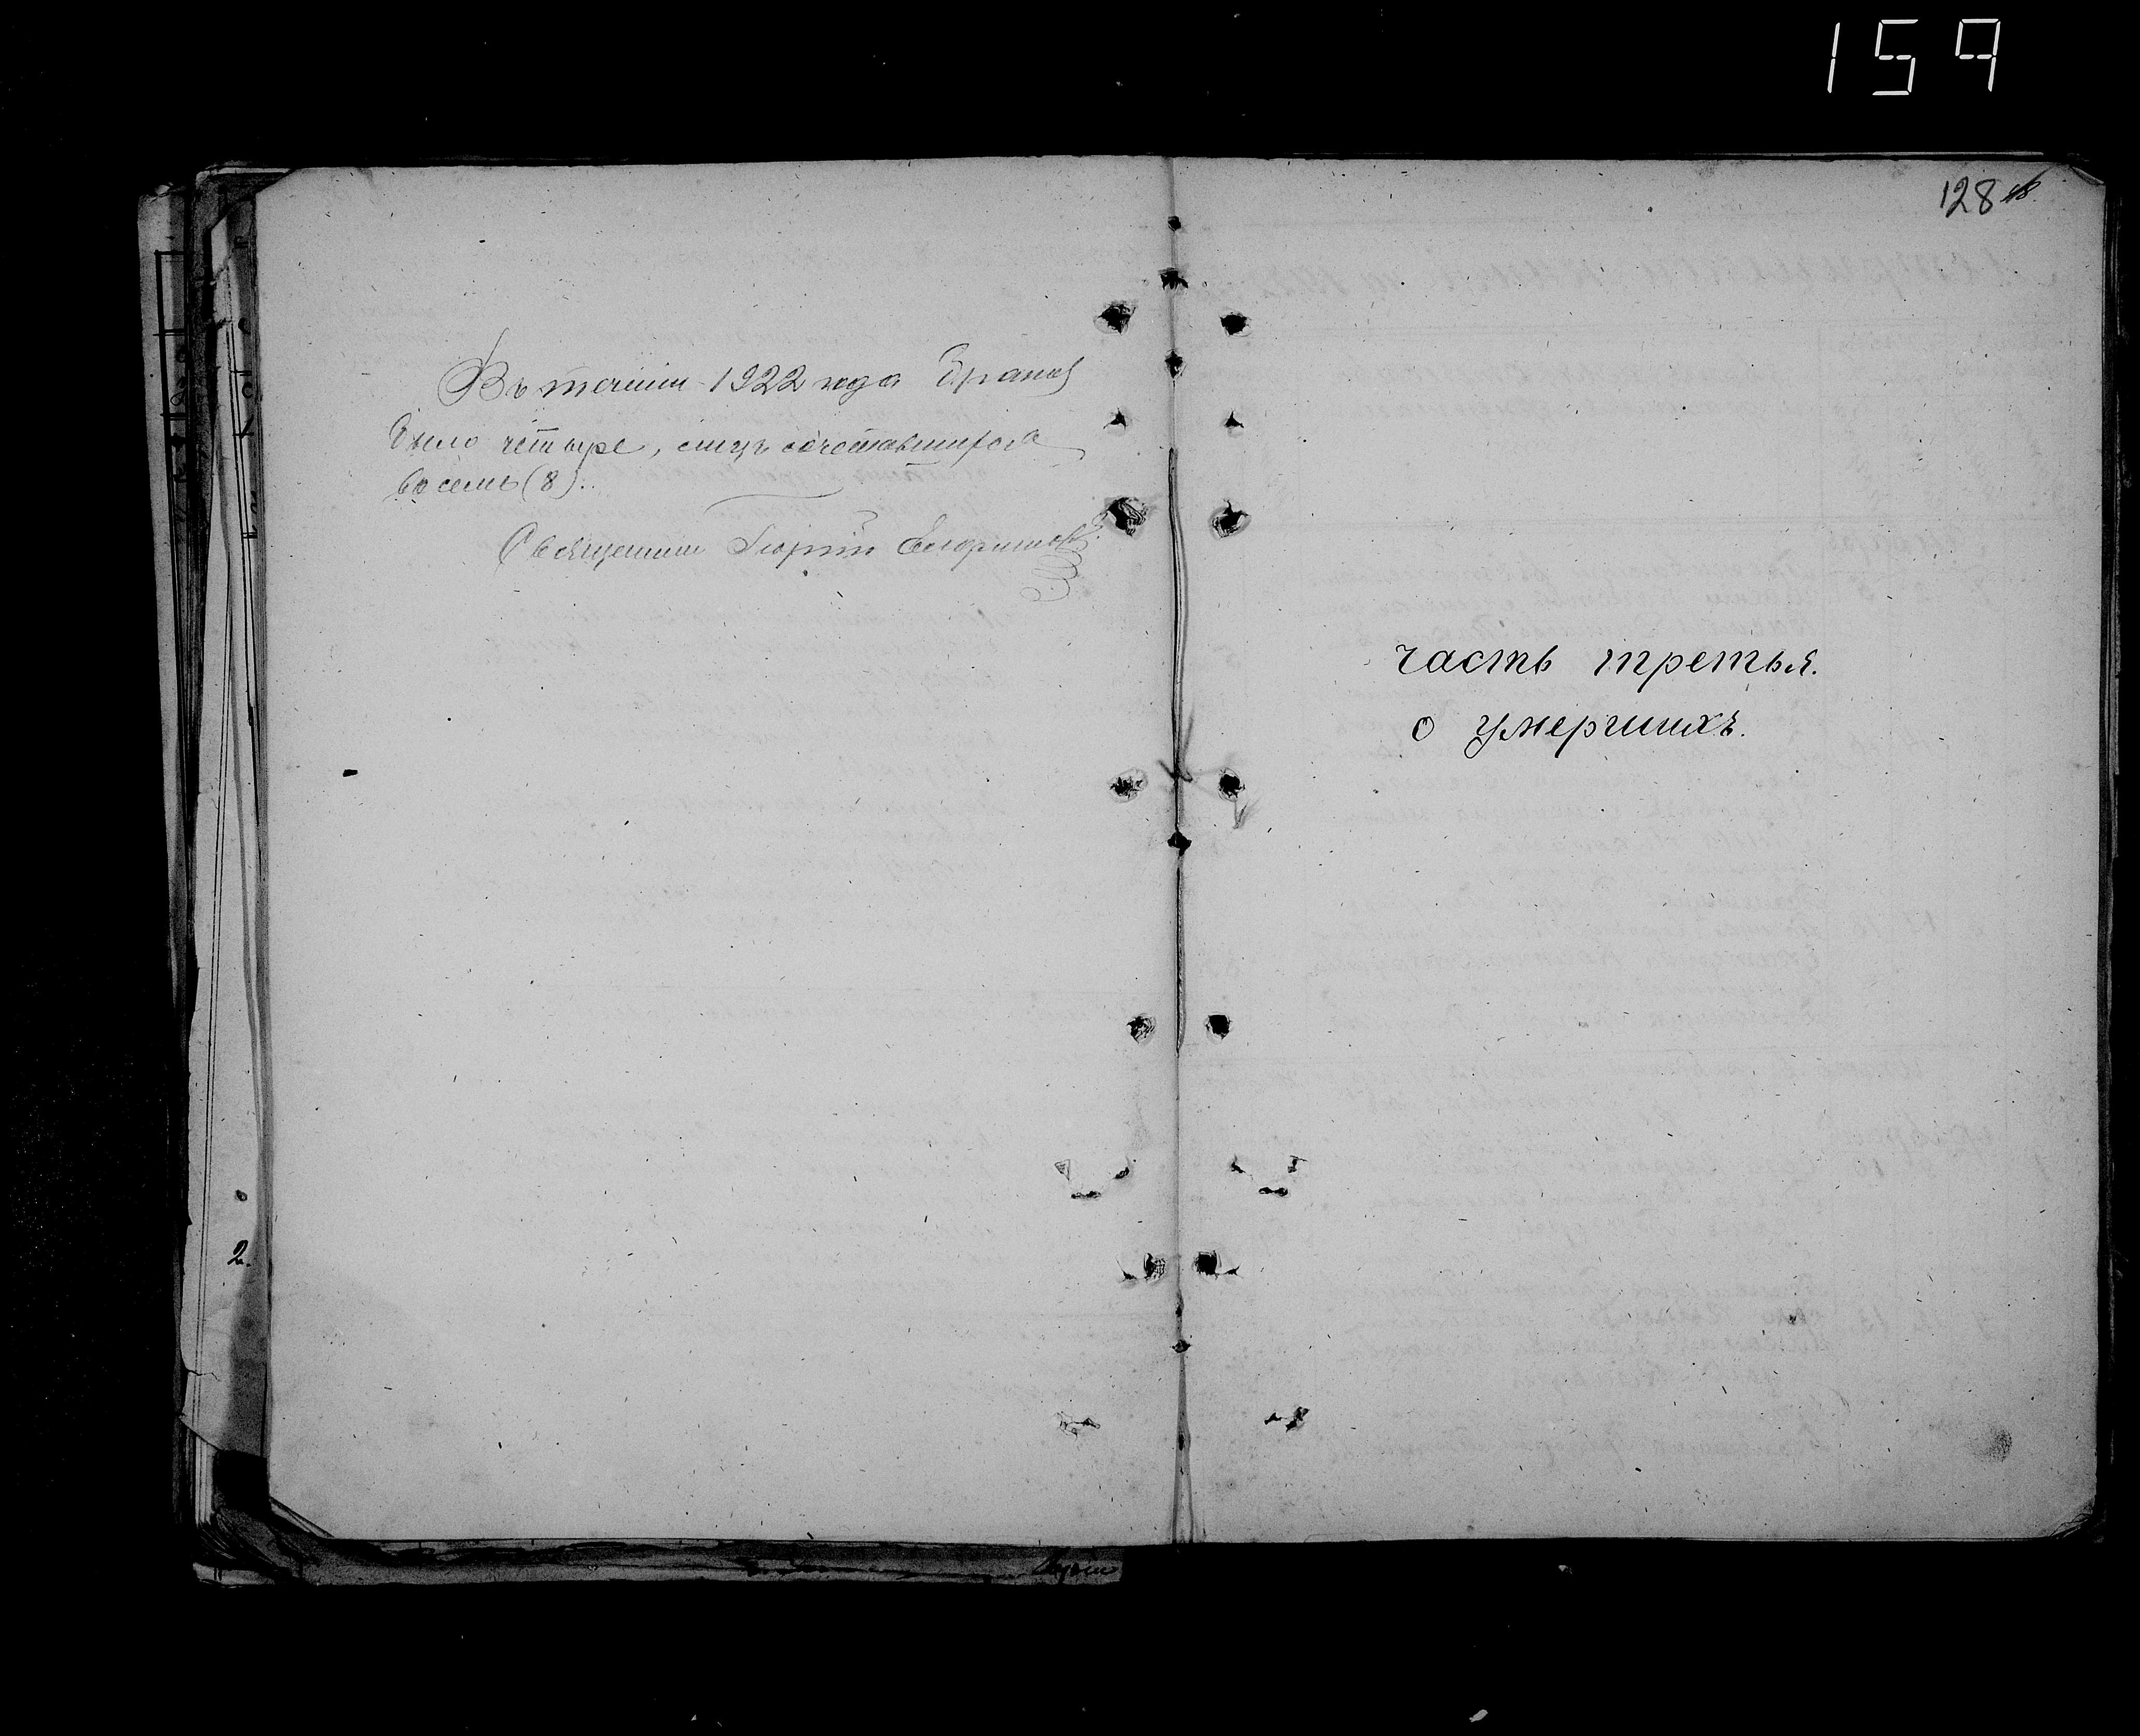 159
128
Въ течении 1922 года браковъ
было четыре, лицъ сочетавшихся
восемь (8).
Священникъ Георгій
часть третья.
о умершихъ.
2.